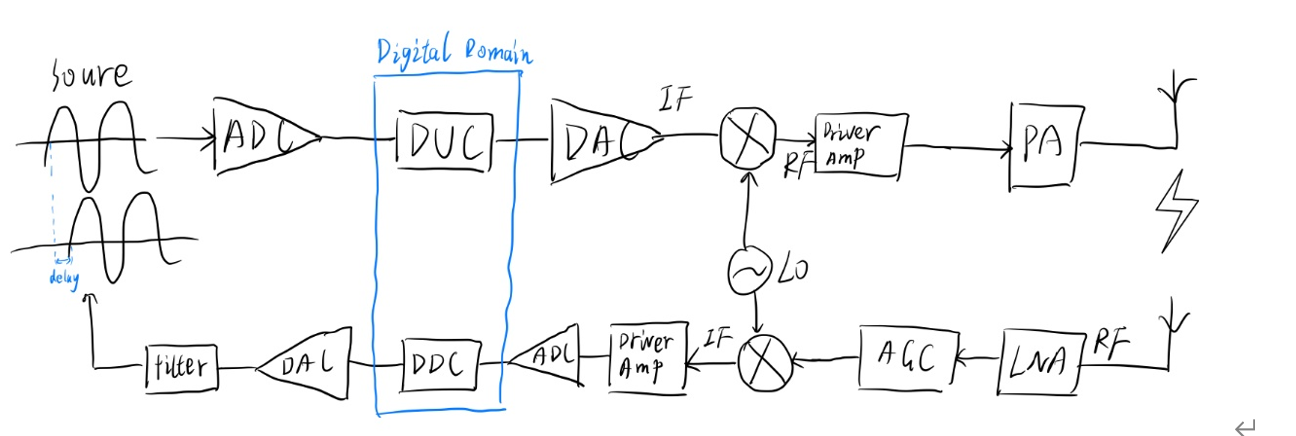 Digital Romain
Soure
ADC
DUC
DAC
IF
RF
Driver
Amp
PA
delay
LO
filter
DAC
DDC
ADC
Driver
Amp
IF
AGC
LNA
RF